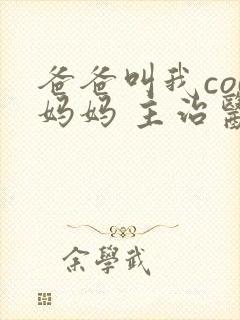 爸爸叫我co
妈妈 主治醫
余學武